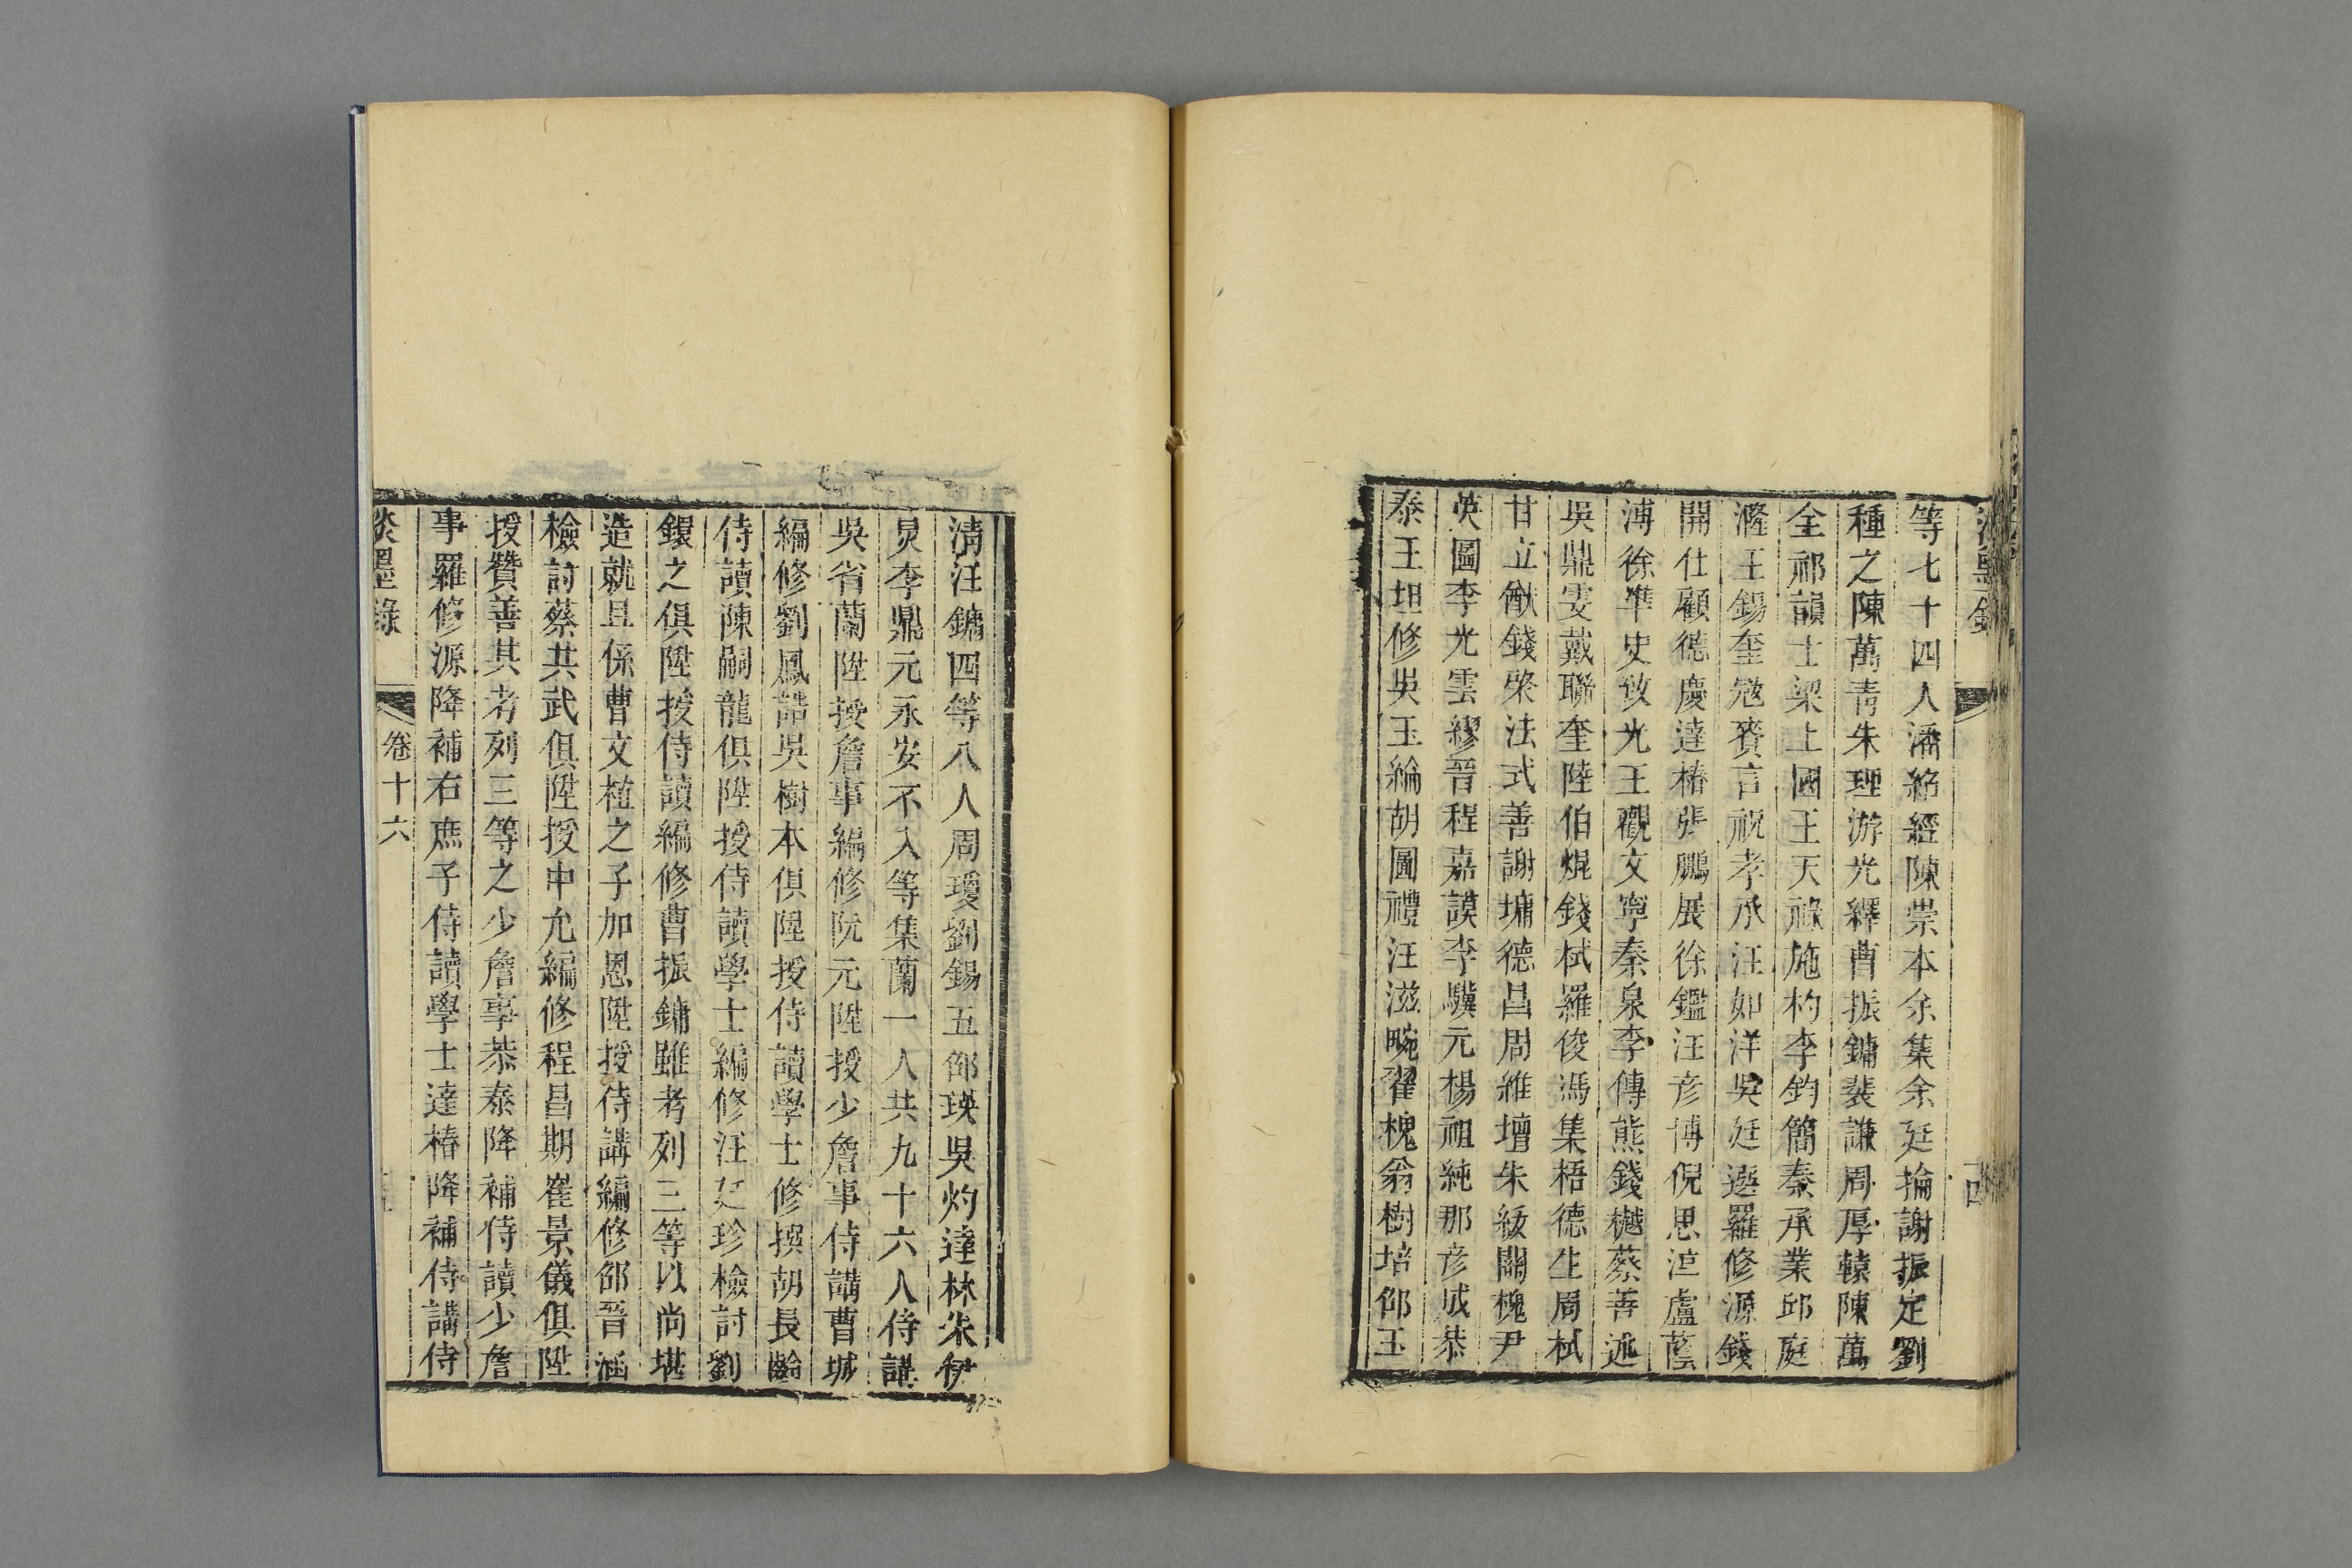 等七十四人潘紹經陳崇本余集余廷掄謝振定劉
種之陳萬青朱理游光繹曹振鏞裴謙周厚轅陳萬
全祁韻士梁上國王天祿施杓李鈞簡秦承業邱庭
漋王錫奎愛賚言祝孝承汪如洋吳廷選羅修源錢
開仕顧德慶達椿張鵬展徐鑑汪彥博倪思淳盧蔭
溥徐準史致光王觀文寧秦泉李傳熊錢樾蔡善述
吳鼎雯戴聯奎陸伯焜錢栻羅俊馮集梧德生周栻
甘立猷錢棨法式善謝墉德昌周維壇朱紱關槐尹
英圖李光雲繆晉程嘉謨李驥元楊祖純那彥成恭
泰王坦修吳玉綸胡圖禮汪滋畹翟槐翁樹培邵玉
清汪鏞四等八人周瓊劉錫五邵瑛吳灼達林朱伊
炅李鼎元永安不入等集蘭一人共九十六人侍講
吳省蘭陞授詹事編修阮元陞授少詹事侍講曹城
編修劉鳳誥吳樹本俱陞授侍讀學士修撰胡長齡
侍讀陳嗣龍俱陞授侍讀學士編修汪廷珍檢討劉
鐶之俱陞授侍讀編修曹振鏞雖考列三等以尚堪
造就且係曹文植之子加恩陞授侍講編修邵晉涵
檢討蔡共武俱陞授中允編修程昌期崔景儀俱陞
授贊善其考列三等之少詹事恭泰降補侍讀少詹
事羅修源降補右庶子侍讀學士達椿降補侍講侍
淡墨錄 卷十六